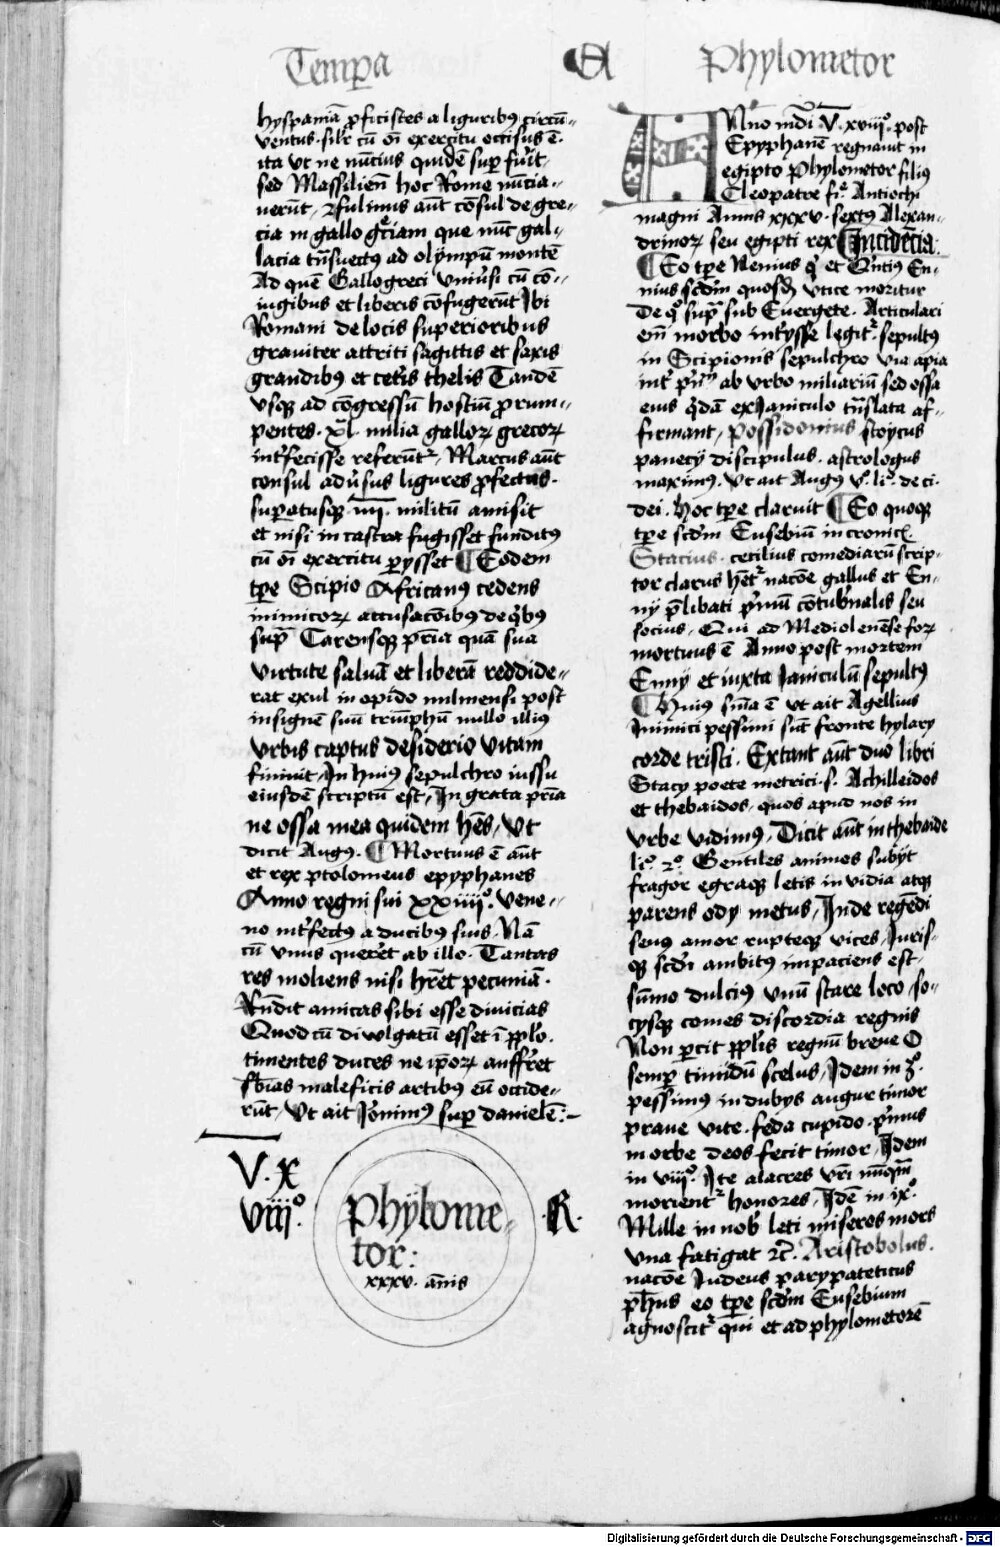 Tempa A Phylometor
hyspaniā ꝓficistes a liguribꝰ circū-
ventus. sil'r cū oī exercitu occisus ē.
ita vt ne nūcius quidē sup fu'it.
sed Massilien̄ hoc Rome nūcia-
uerūt, ⁊ fulinus aūt cōsul de gre-
cia in gallo gͤciam que nūc gal-
lacia trāsuectꝰ ad olympū montē
Ad quē Gallogreci vniu'si cū cō-
iugibus et liberis cōfugerūt Ibi
Romani de locis superioribus
grauiter attriti sagittis et saxis
grandibꝰ et cet'is thelis Tandē
vsqꝫ ad cōgressū hostiū prorum-
pentes. xl. milia galloꝝ grecoꝝ
int'fecisse referūtᷣ, Marcus aūt
consul adu'sus ligures ꝓfectus.
sup̲atusqꝫ .iiii. militū amisit
et nisi in castra fugisset funditꝰ
cū oī exercitu ꝑysset ¶ Eodem
tꝑe Scipio Affricanꝰ cedens
inimicoꝝ accusacōibꝰ de qͥbꝰ
supᵃ Carensqꝫ pr̄ia quā sua
virtute saluā et liberā reddide-
rat exul in opido nilmensi post
insignē suū triūphū nullo illiꝰ
vrbis captus desiderio vitam
finiuit, In huiꝰ sepulchro iussu
eiusdē scriptū est, In grata pr̄ia
ne ossa mea quidem hēs, Vt
dicit Augꝰ. ¶ Mortuus ē aūt
et rex ptolomeus epyphanes
Anno regni sui xxiiii°. vene-
no int'fectꝰ a ducibꝰ suis. Nā
cū vnus quer'et ab illo. Tantas
res moliens nisi hr̄et pecuniā.
Rn̄dit amicas sibi esse diuicias
Quod cū diwlgatū esset ī ppl'o.
timentes duces ne ip̄oꝝ auffr'et
sb'ias maleficis artibꝰ eū occide-
rūt, Vt ait Iͦronimꝰ sup danielē:-
V. x
viii°.
Phylome-
tor:
xxxv. ānis
.R.
ANno mūdi .V. xviii°. post
Epyphanē regnauit in
egipto Phylometor filiꝰ
Cleopatre fi.ͤ Antiochi
magni Annis xxxv. sextꝰ Alexan-
drinoꝝ seu egipti rex ¶ Incidēcia.
¶ Eo tꝑe Nenius qͥ et Q'ntiꝰ En-
nius scd̄m quosdā vtice moritur
de qͦ supᵃ sub Euergete. Articulari
em̄ morbo int'ysse legitᷣ. sepultꝰ
in Scipionis sepulchro via apia
int' p'mū ab vrbo miliariū sed ossa
eius qͥdā ex Ianiculo trāslata af-
firmant, Possidonius stoycus
panecij discipulus. astrologus
maximꝰ. vt ait Augꝰ v°. li°. de ci.
dei. hoc tꝑe claruit ¶ Eo quoqꝫ
tꝑe scd̄m Eusebiū in cronic̄.
Stacius. cecilius comediarū scrip-
tor clarus hētᷣ nacōe gallus et En-
nij p̄libati p'mū cōtub'nalis seu
socius, Qui ad Mediolenēse foꝝ
mortuus ē Anno post mortem
Ennij et iuxta Ianiculū sepultꝰ
¶ Huiꝰ sn̄ia ē vt ait Agellius
Inimici pessimi sūt fronte hylary
corde tristi. Extant aūt duo libri
Stacij poete metrici .s. Achilleidos
et thebaidos, quos apud nos in
vrbe vidimꝰ. Dicit aūt in thebaide
li°. 2°. Gentiles animos subijt
fragor egraqꝫ letis in vidia atqꝫ
parens ody metus, Inde regēdi
seuꝰ amor rupteqꝫ vices, Iuris-
qꝫ scd̄i ambitꝰ impaciens est,
sūmo dulciꝰ vnū stare loco, so-
cysqꝫ comes discordia regnis
Non ꝑcit ppl'is regnū breue O
semp̲ timidū scelus, Idem in 3°.
pessimꝰ in dubys augur timor
praue vite. feda cupido. p'mus
in orbe deos fecit timor, Idem
in viii°. Ite alacres vr̄i nūqᷓm
morientᷣ honores, Idē in ix°.
Mille in nob' leti miseros mors
vna fatigat ⁊c̄. Aristobolus.
nacōe Iudeus parypateticus
ph̄us eo tꝑe scd̄m Eusebium
agnoscitᷣ q̄ui et ad phylometorē
Digitalisierung gefördert durch die Deutsche Forschungsgemeinschaft - DFG